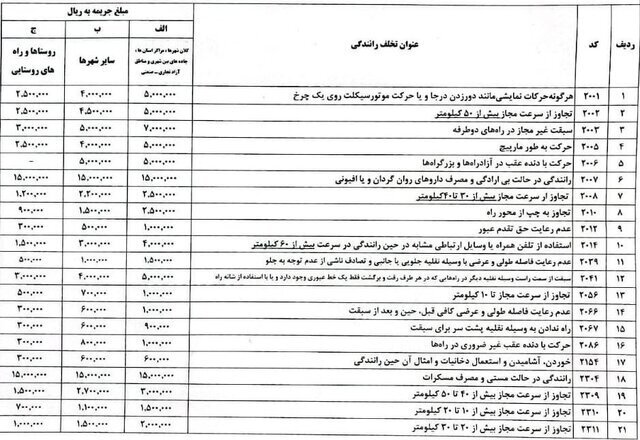 ردیف کد عنوان تخلف رانندگی مبلغ جریمه به ریال
الف ب ج
کلان شهرها، مراکز استان ها، جاده های بین شهری و مناطق آزاد تجاری - صنعتی سایر شهرها روستاها و راه های روستایی
۱ ۲۰۰۱ هرگونه حرکات نمایشی مانند دورزدن درجا و یا حرکت موتورسیکلت روی یک چرخ ۵،۰۰۰،۰۰۰ ۴،۰۰۰،۰۰۰ ۲،۵۰۰،۰۰۰
۲ ۲۰۰۲ تجاوز از سرعت مجاز بیش از ۵۰ کیلومتر ۵،۰۰۰،۰۰۰ ۴،۵۰۰،۰۰۰ ۲،۵۰۰،۰۰۰
۳ ۲۰۰۳ سبقت غیر مجاز در راه‌های دوطرفه ۷،۰۰۰،۰۰۰ ۵،۰۰۰،۰۰۰ ۳،۰۰۰،۰۰۰
۴ ۲۰۰۵ حرکت به طور مارپیچ ۵،۰۰۰،۰۰۰ ۴،۰۰۰،۰۰۰ ۲،۵۰۰،۰۰۰
۵ ۲۰۰۶ حرکت با دنده عقب در آزادراه‌ها و بزرگراه‌ها ۵،۰۰۰،۰۰۰ ۵،۰۰۰،۰۰۰ -
۶ ۲۰۰۷ رانندگی در حالت بی ارادگی و مصرف داروهای روان گردان و یا افیونی ۱۵،۰۰۰،۰۰۰ ۱۵،۰۰۰،۰۰۰ ۱۵،۰۰۰،۰۰۰
۷ ۲۰۰۸ تجاوز از سرعت مجاز بیش از ۳۰ تا ۴۰ کیلومتر ۲،۵۰۰،۰۰۰ ۲،۲۰۰،۰۰۰ ۱،۲۰۰،۰۰۰
۸ ۲۰۱۰ تجاوز به چپ از محور راه ۲،۵۰۰،۰۰۰ ۱،۵۰۰،۰۰۰ ۹۰۰،۰۰۰
۹ ۲۰۱۲ عدم رعایت حق تقدم عبور ۱،۰۰۰،۰۰۰ ۵۰۰،۰۰۰ ۳۰۰،۰۰۰
۱۰ ۲۰۱۴ استفاده از تلفن همراه یا وسایل ارتباطی مشابه در حین رانندگی در سرعت بیش از ۶۰ کیلومتر ۴،۰۰۰،۰۰۰ ۳،۰۰۰،۰۰۰ ۱،۵۰۰،۰۰۰
۱۱ ۲۰۳۹ عدم رعایت فاصله طولی و عرضی با وسیله نقلیه جلویی یا جانبی و تصادف ناشی از عدم توجه به جلو ۱،۰۰۰،۰۰۰ ۱،۰۰۰،۰۰۰ ۵۰۰،۰۰۰
۱۲ ۲۰۴۱ سبقت از سمت راست وسیله نقلیه دیگر در راه‌هایی که در هر طرف رفت و برگشت فقط یک خط عبوری وجود دارد و یا با استفاده از شانه راه ۵،۰۰۰،۰۰۰ ۴،۰۰۰،۰۰۰ ۳،۰۰۰،۰۰۰
۱۳ ۲۰۵۶ تجاوز از سرعت مجاز تا ۱۰ کیلومتر ۱،۰۰۰،۰۰۰ ۷۰۰،۰۰۰ ۵۰۰،۰۰۰
۱۴ ۲۰۶۶ عدم رعایت فاصله طولی و عرضی کافی قبل، حین و بعد از سبقت ۱،۰۰۰،۰۰۰ ۶۰۰،۰۰۰ ۳۰۰،۰۰۰
۱۵ ۲۰۶۷ راه ندادن به وسیله نقلیه پشت سر برای سبقت ۹۰۰،۰۰۰ ۶۰۰،۰۰۰ ۳۰۰،۰۰۰
۱۶ ۲۰۸۶ حرکت با دنده عقب غیر ضروری در راه‌ها ۱،۰۰۰،۰۰۰ ۸۰۰،۰۰۰ ۳۰۰،۰۰۰
۱۷ ۲۱۵۴ خوردن، آشامیدن و استعمال دخانیات و امثال آن حین رانندگی ۶۰۰،۰۰۰ ۶۰۰،۰۰۰ ۳۰۰،۰۰۰
۱۸ ۲۳۰۴ رانندگی در حالت مستی و مصرف مسکرات ۱۵،۰۰۰،۰۰۰ ۱۵،۰۰۰،۰۰۰ ۱۵،۰۰۰،۰۰۰
۱۹ ۲۳۰۹ تجاوز از سرعت مجاز بیش از ۴۰ تا ۵۰ کیلومتر ۳،۰۰۰،۰۰۰ ۲،۷۰۰،۰۰۰ ۱،۵۰۰،۰۰۰
۲۰ ۲۳۱۰ تجاوز از سرعت مجاز بیش از ۱۰ تا ۲۰ کیلومتر ۱،۵۰۰،۰۰۰ ۱،۱۰۰،۰۰۰ ۷۰۰،۰۰۰
۲۱ ۲۳۱۱ تجاوز از سرعت مجاز بیش از ۲۰ تا ۳۰ کیلومتر ۲،۰۰۰،۰۰۰ ۱،۵۰۰،۰۰۰ ۱،۰۰۰،۰۰۰